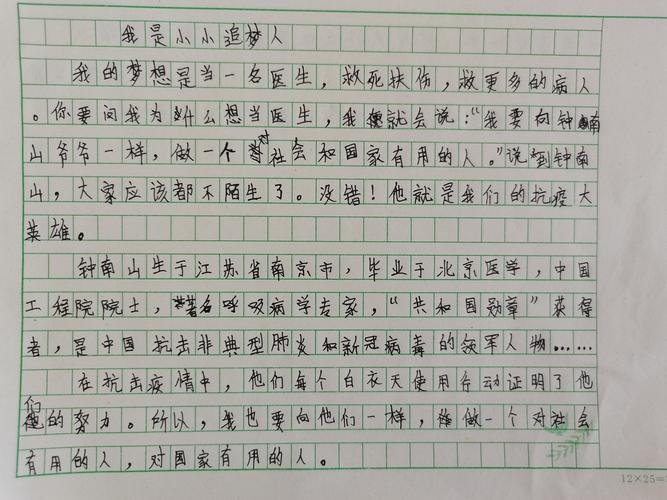 我是小小追梦人
我的梦想是当一名医生，救死扶伤，救更多的病人
。你要问我为什么想当医生，我就会说：“我要向钟南
山爷爷一样，做一个对社会和国家有用的人。”说到钟南
山，大家应该都不陌生了。没错！他就是我们的抗疫大
英雄。
钟南山生于江苏省南京市，毕业于北京医学，中国
工程院院士，著名呼吸病学专家，“共和国勋章”获得
者，是中国抗击非典型肺炎和新冠病毒的领军人物……
在抗击疫情中，他们每个白衣天使用行动证明了他
们的努力。所以，我也要向他们一样，做一个对社会
有用的人，对国家有用的人。
12×25=